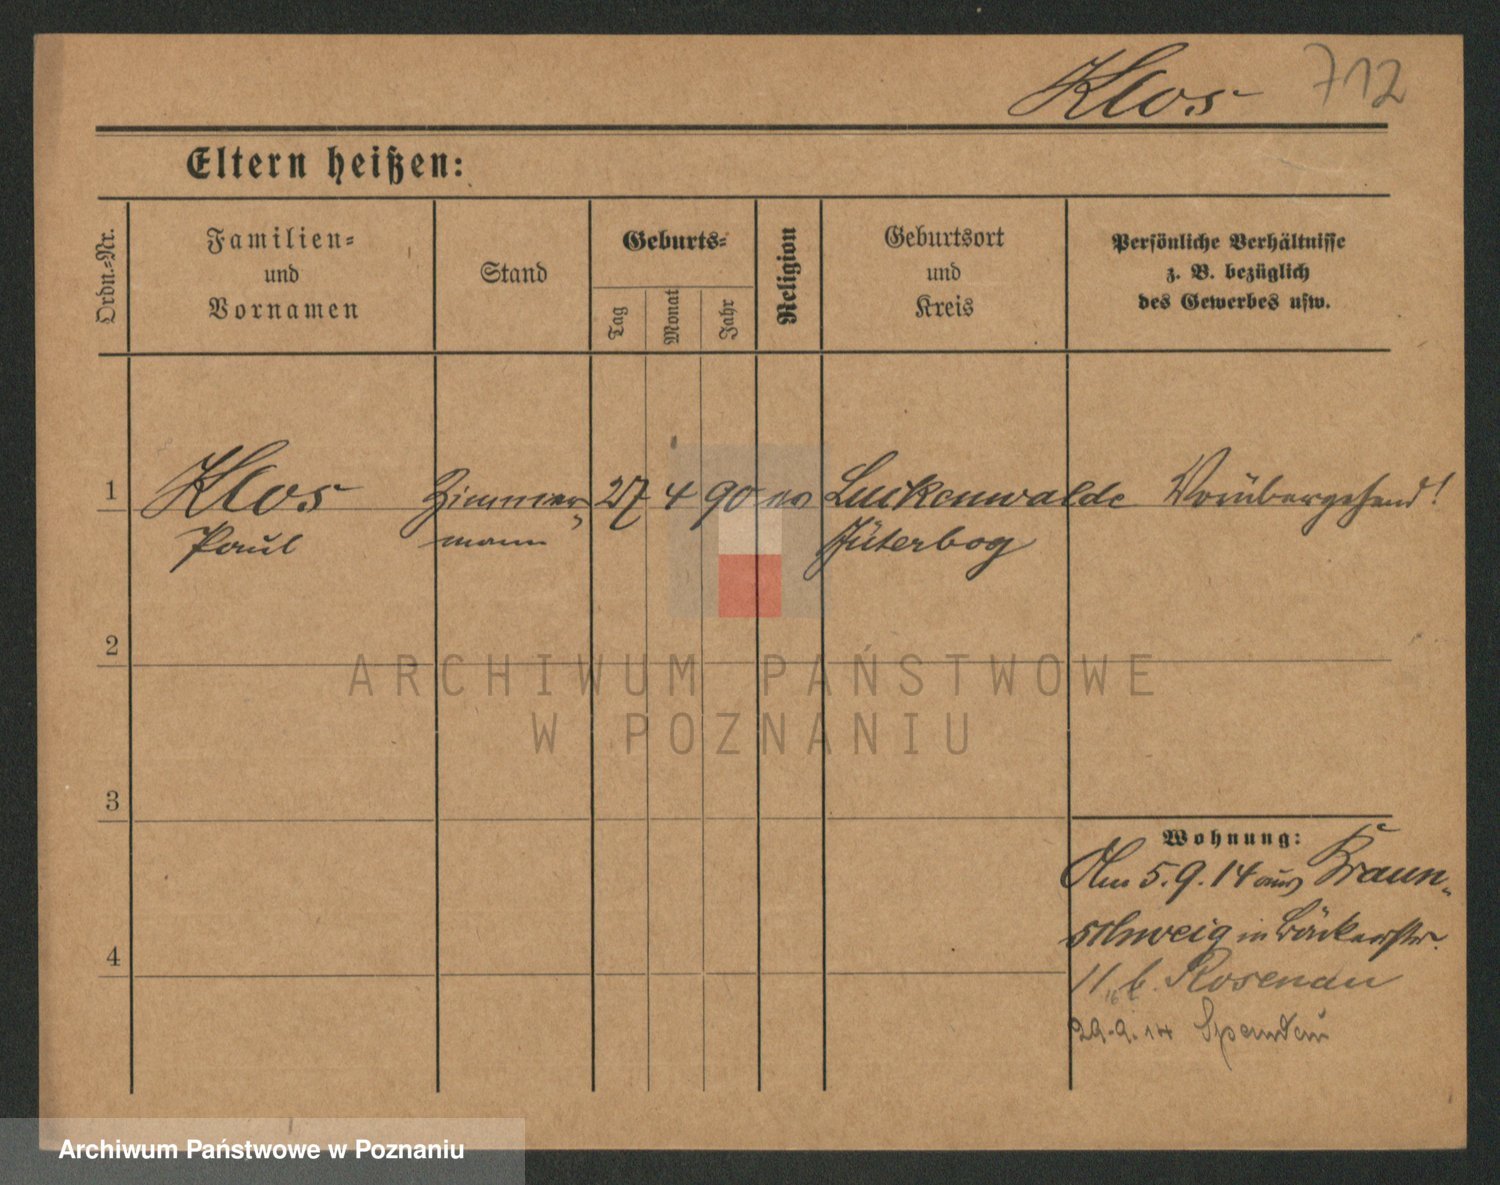 Klos 712
Eltern heißen:
Ordn.-Nr.
Familien-
und
Vornamen
Stand
Geburts-
Tag
Monat
Jahr
Religion
Geburtsort
und
Kreis
Persönliche Verhältnisse
z. B. bezüglich
des Gewerbes usw.
1 Klos Zimmer- 27 4 90 ev Luckenwalde Vorübergehend!
Paul mann Jüterbog
2
ARCHIWUM PAŃSTWOWE
W POZNANIU
3
Wohnung:
Am 5.9.14 aus Braun-
schweig in Bäckerstr.
4
11 b. Rosenau
29.9.14 Spandau
Archiwum Państwowe w Poznaniu